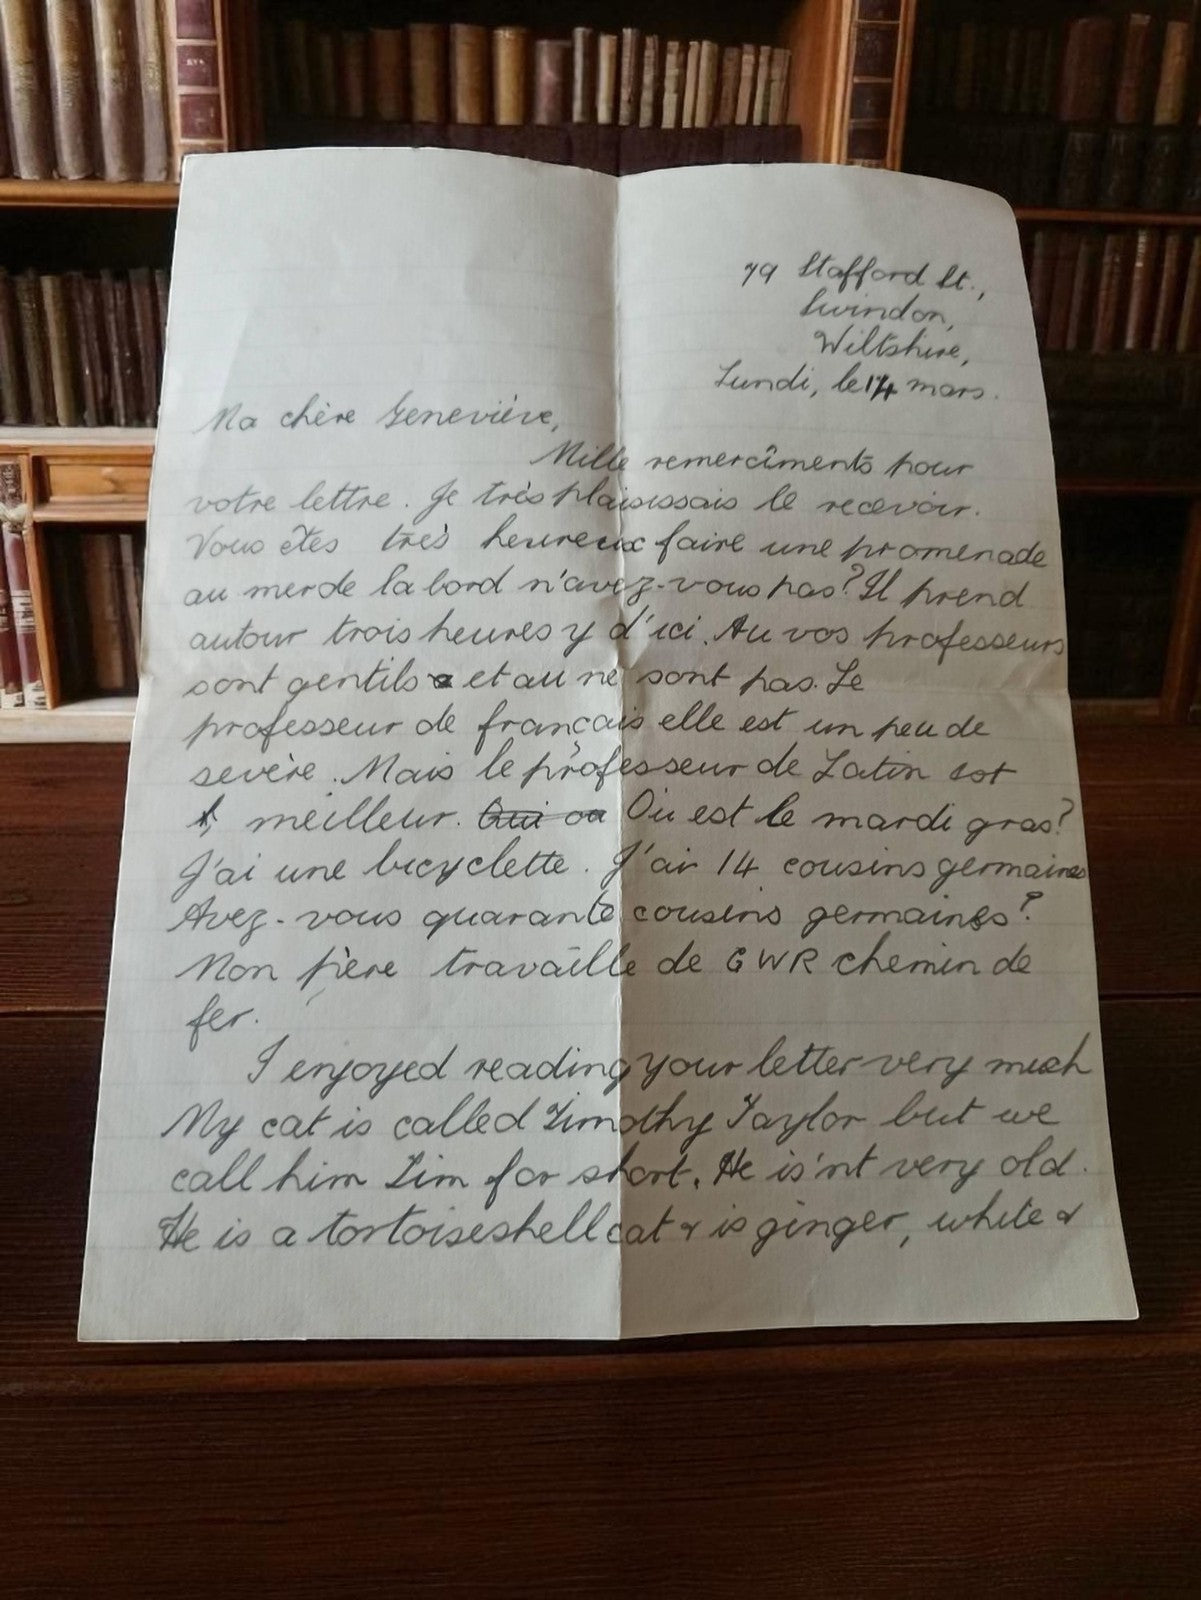 79 Stafford St.,
Swindon,
Wiltshire,
Lundi, le 14 mars.
Ma chère Geneviève,
Mille remercîments pour
votre lettre. Je très plaisissais le recevoir.
Vous êtes très heureux faire une promenade
au mer de la bord n'avez-vous pas? Il prend
autour trois heures y d'ici. Au vos professeurs
sont gentils et au ne sont pas. Le
professeur de français elle est un peu de
sevère. Mais le professeur de Latin est
meilleur. Qui ou Où est le mardi gras?
J'ai une bicyclette. J'ai 14 cousins germaines
Avez-vous quarante cousins germaines?
Mon père travaille de GWR chemin de
fer.
I enjoyed reading your letter very much
My cat is called Timothy Taylor but we
call him Tim for short. He is'nt very old.
He is a tortoiseshell cat & is ginger, white &